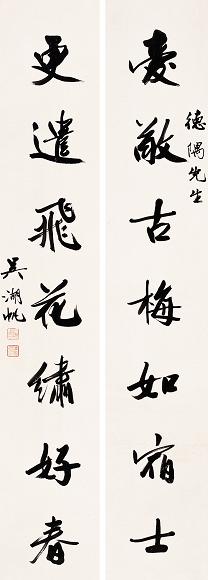 德隅先生
愛敬古梅如宿士
更遣飛花繡好春
吳湖帆